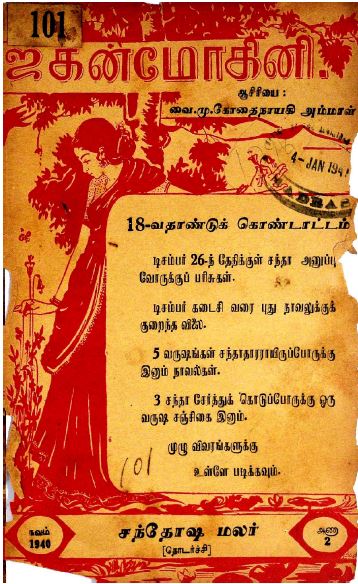 101
ஜகன்மோகினி.
ஆசிரியை :
வை.மு.கோதைநாயகி அம்மாள்
4-JAN 194
MADRAS
18-வதாண்டுக் கொண்டாட்டம்
டிசம்பர் 26-ந் தேதிக்குள் சந்தா அனுப்பு
வோருக்குப் பரிசுகள்.
டிசம்பர் கடைசி வரை புது நாவலுக்குக்
குறைந்த விலை.
5 வருஷங்கள் சந்தாதாரராயிருப்போருக்கு
இனாம் நாவல்கள்.
3 சந்தா சேர்த்துக் கொடுப்போருக்கு ஒரு
வருஷ சஞ்சிகை இனாம்.
முழு விவரங்களுக்கு
உள்ளே படிக்கவும்.
101
நவம்
1940
சந்தோஷ மலர்
[தொடர்ச்சி]
அணா
2